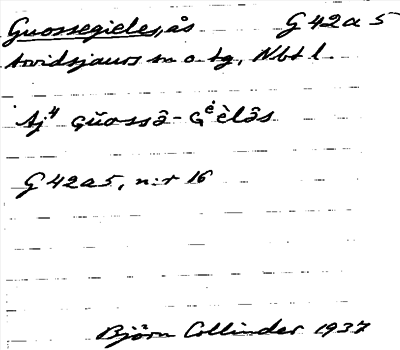 Guossegieles, ås G 42 a 5
Arvidsjaurs sn o. tg, Nbt l.
Aj⁴ Gŭossâ-Gėèlâs
G 42 a 5, n:r 16
Björn Collinder 1937